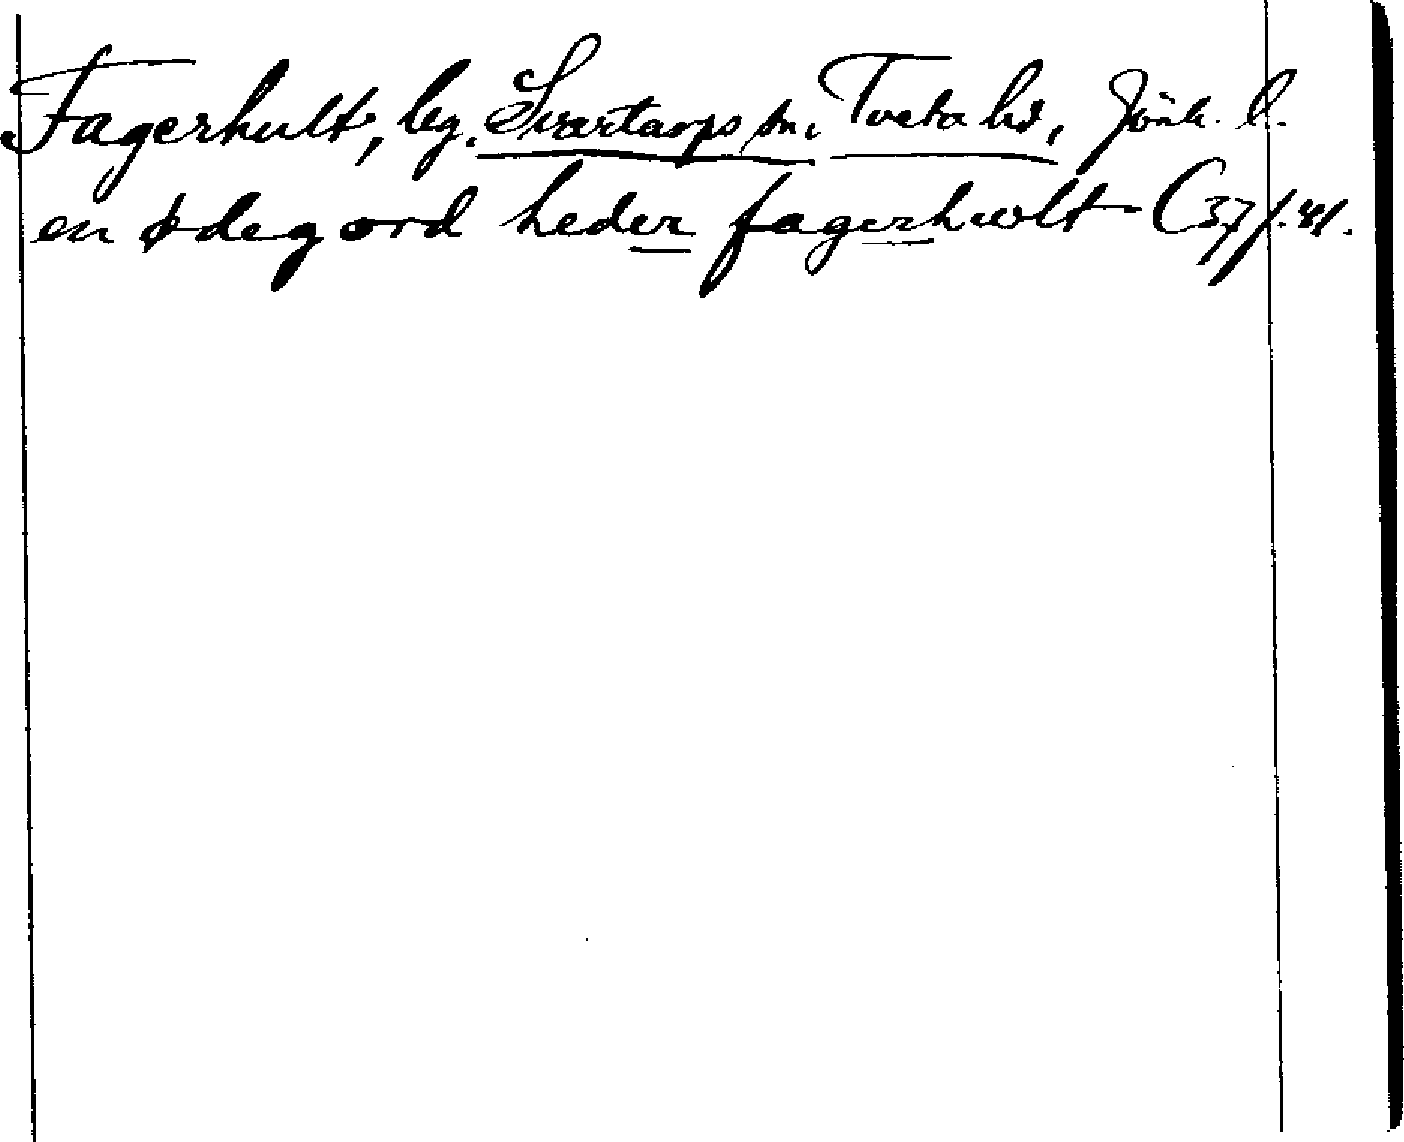 Fagerhult, by, Svartarps sn, Tveta hd, Jönk. l.
en ødegord heder fagerhwlt (37/